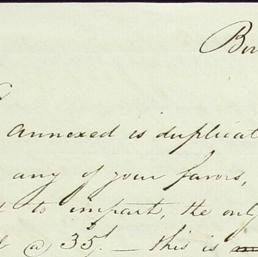 Bo
annexed is duplicat
any of your favors,
to impart, the only
@ 35/. — this is